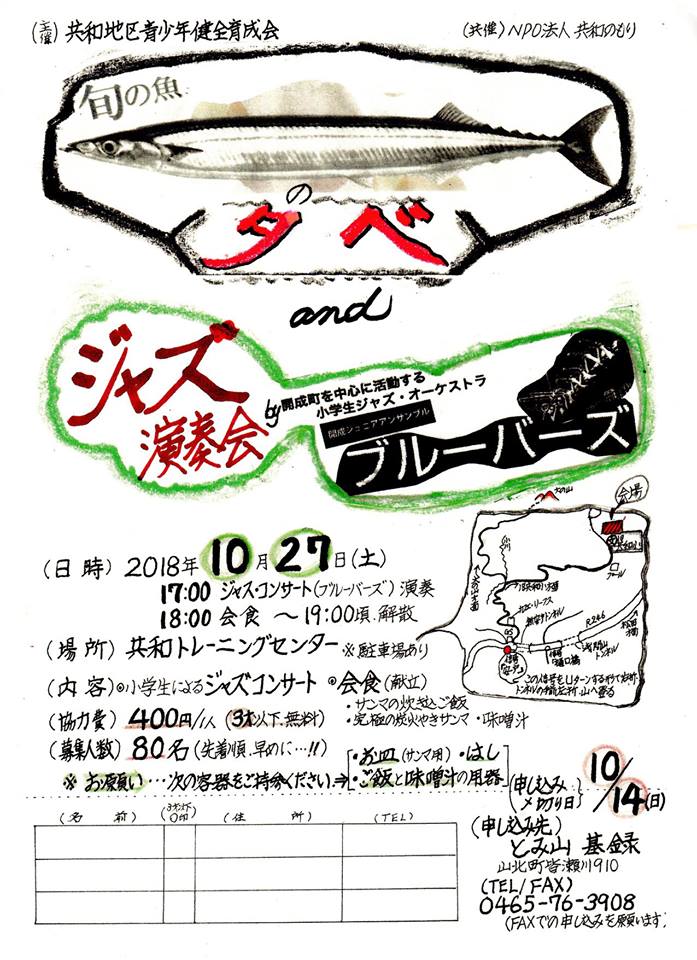 (主催) 共和地区青少年健全育成会
(共催) NPO法人 共和のもり
旬の魚
の
夕べ
and
ジャズ
演奏会
by 開成町を中心に活動する
小学生ジャズ・オーケストラ
開成ジュニアアンサンブル
ブルーバーズ
会場
(日時) 2018年10月27日(土)
17:00 ジャズ・コンサート(ブルーバーズ)演奏
18:00 会食 〜19:00頃.解散
(場所) 共和トレーニングセンター ※駐車場あり
(内容) ◎小学生によるジャズコンサート ◎会食(献立)
・サンマの炊きこご飯
・究極の炭火やきサンマ ・味噌汁
(協力費) 400円/1人 (3才以下.無料)
(募集人数) 80名 (先着順.早めに…!!)
※ お願い…次の容器をご持参ください⇒
・お皿(サンマ用) ・はし
・ご飯と味噌汁の用器
R246
プール
(申し込み〆切り日) 10/14(日)
(名 前) (3才以下○印) (住 所) (TEL)
(申し込み先)
とみ山 基録
山北町皆瀬川910
(TEL/FAX)
0465-76-3908
(FAXでの申し込みを願います)